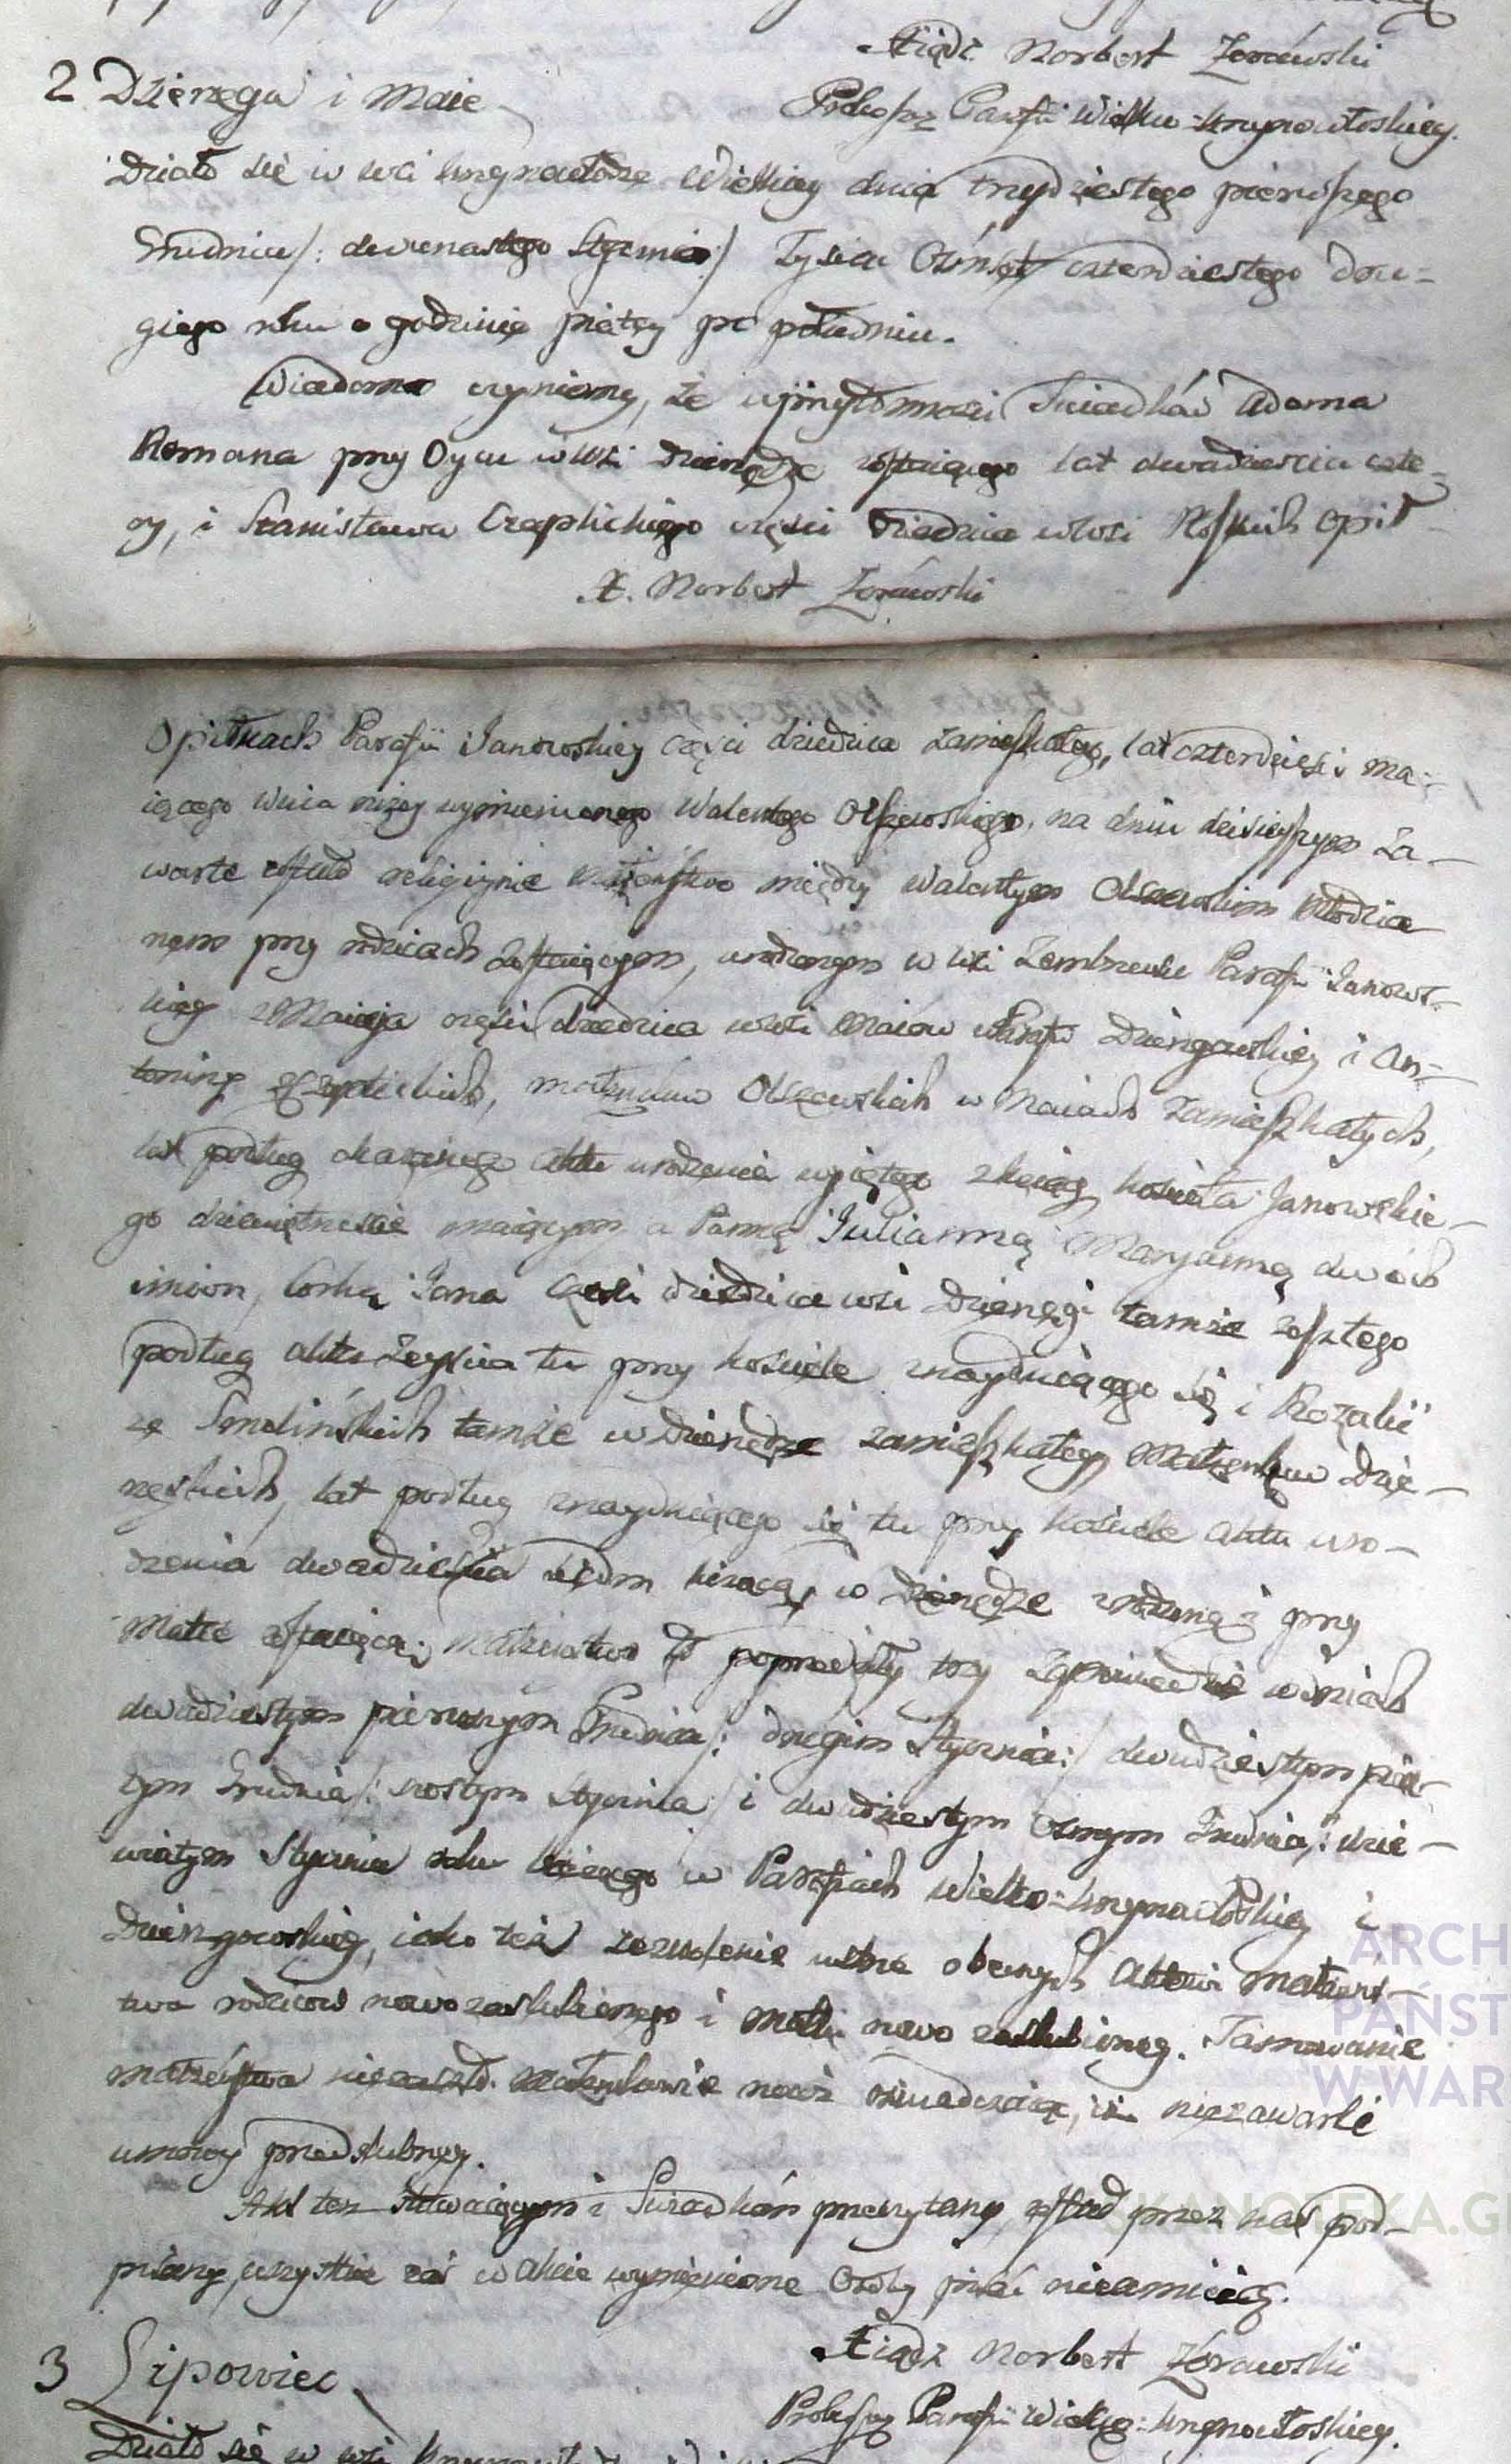 Xiądz Norbert Zórawski
2 Dzieręga i Maie
Proboszcz Parafii Wielko-Krzynowłoskiey.
Działo się w wsi Krzynowłodze Wielkiey dnia trzydziestego pierwszego
Grudnia /: dwunastego Stycznia :/ Tysiąc Ośmset czterdziestego dru-
giego roku o godzinie piątey po południu.
Wiadomo czyniemy, że w przytomności Swiadków Adama
Romana przy Oycu w wsi Dzierędze zostaiącego lat dwadzieścia czte-
ry, i Stanisława Czaplickiego części Dziedzica w wsi Rostkich Opił
X. Norbert Zórawski
Opiłkach Parafii Janowskiey części dziedzica zamieszkałego, lat czterdzieści ma-
iącego wuia niżey wymienionego Walentego Olszewskiego, na dniu dzisieyszym za-
warte zostało religiynie małżeństwo między Walentym Olszewskim Młodzia-
nem przy rodzicach zostaiącym, urodzonym w wsi Zembrzusk Parafii Janows-
kiey z Macieja części dziedzica w wsi Maiów w Parafii Dzierzgowskiey i An-
toniny z Czaplickich, małżonków Olszewskich w Maiach zamieszkałych,
lat podług okazanego aktu urodzenia wyiętego z ksiąg kościoła Janowskie-
go dziewiętnaście maiącym, a Panną Julianną Maryanną dwóch
imion, córką Jana części dziedzica wsi Dzieręgi tamże zeszłego
podług aktu zeyścia tu przy kościele znayduiącego się i Rozalii
ze Smolińskich tamże w Dzierędze zamieszkałey Małżonków Dzie-
ręskich, lat podług znayduiącego się tu przy kościele aktu uro-
dzenia dwadzieścia siedm liczącą, w Dzierędze urodzoną i przy
Matce zostaiącą; małżeństwo to poprzedziły trzy zapowiedzie w dniach
dwudziestym pierwszym Grudnia /: drugim Stycznia :/ dwudziestym pią-
tym Grudnia /: szostym Stycznia :/ i dwudziestym osmym Grudnia /: dzie-
wiątym Stycznia roku bieżącego w Parafiach Wielko-Krzynowłoskiey i
Dzierzgowskiey, iako też zezwolenie ustne obecnych aktowi małżeńs-
twa rodziców nowozaslubionego i matki nowo zaslubioney. Tamowanie
małżeństwa niezaszło. Małżonkowie nowi oświadczaią, iż niezawarli
umowy przedslubney.
Akt ten stawaiącym i Swiadkom przeczytany, został przez nas pod-
pisany, wszystkie zaś w akcie wymienione Osoby pisać nieumieią.
Xiądz Norbert Zórawski
3 Lipowiec
Proboszcz Parafii Wielko-Krzynowłoskiey.
Działo się w wsi
ARCH
PAŃST
W WAR
SKANOTEKA.G